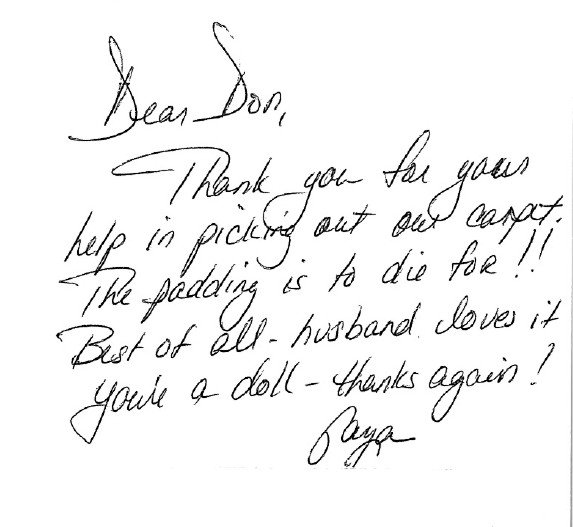 Dear Don,
Thank you for your
help in picking out our carpet.
The padding is to die for!!
Best of all - husband loves it
You're a doll - thanks again!